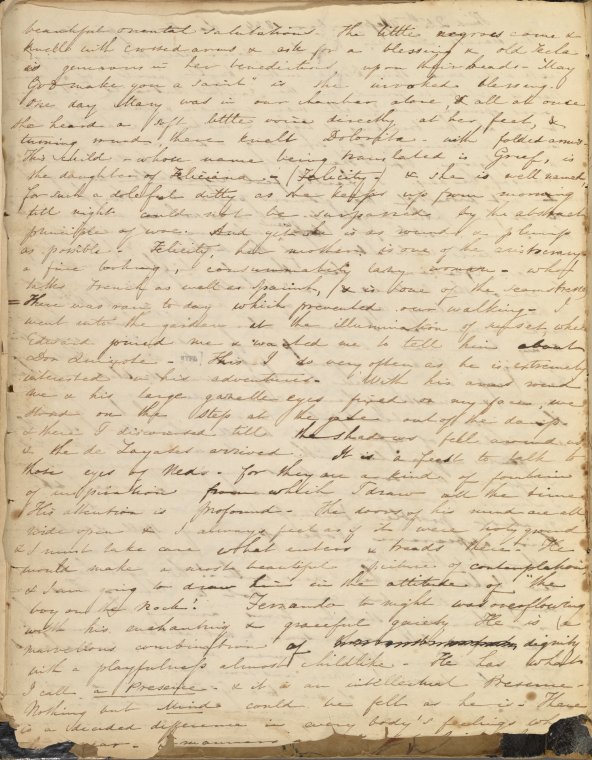 beautiful oriental salutation. The little negroes come &
kneel with crossed arms & ask for a blessing & old Tecla
is generous in her benedictions upon their heads - "May
God make you a saint" is the invoked blessing.
One day Mary was in our chamber alone, & all at once
she heard a soft little voice directly at her feet, &
turning round there knelt Dolorita - with folded arms -
This child - whose name being translated is Grief, is
the daughter of Feliciana - (Felicity -) & she is well named
for such a doleful ditty as she keeps up from morning
till night could not be surpassed by the abstract
principle of woe. And yet she is as round & plump
as possible - Felicity, her mother, is one of the aristocracy
a fine looking, consummately lazy woman - who
talks French as well as Spanish, & is one of the seamstresses
There was rain to day which prevented our walking - I
went into the garden at the illumination of sunset, where
Edward joined me & wanted me to tell him about
Don Quixote - This I do very often as he is extremely
interested in his adventures. With his arms round
me & his large gazelle eyes fixed on my face, we
stood on the step at the gate out of the damp
& there I discoursed till the shadows fell around us
& the de Layades arrived. It is a feast to talk to
those eyes of Neds - for they are a kind of fountain
of inspiration from which I draw all the time
His attention is profound - The doors of his mind are all
wide open & I always feel as if it were holy ground
& I must take care what enters & treads there. He
would make a most beautiful picture of contemplation
& I am going to draw him in the attitude of "the
boy on the Rock." Fernando to night was overflowing
with his enchanting & graceful gaiety He is a
marvellous combination of dignity
with a playfulness almost childlike - He has what
I call a Presence - & it is an intellectual Presence -
Nothing but Mind could be felt as he is - There
is a decided difference in every body's feelings when
manners